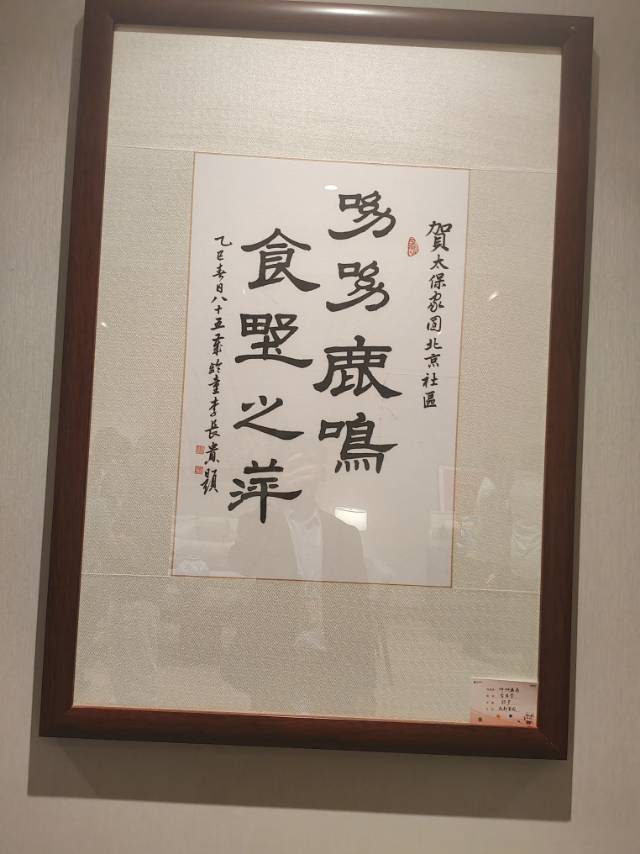 賀太保家园北京社區
呦呦鹿鳴
食野之萍
乙巳春日八十五歲龄童李長貴題